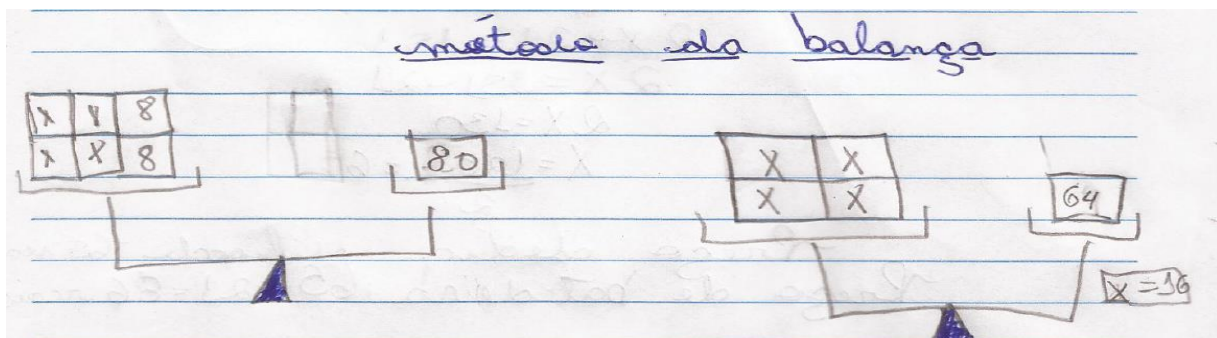 método da balança
X X 8
X X 8
80
X X
X X
64
X = 16